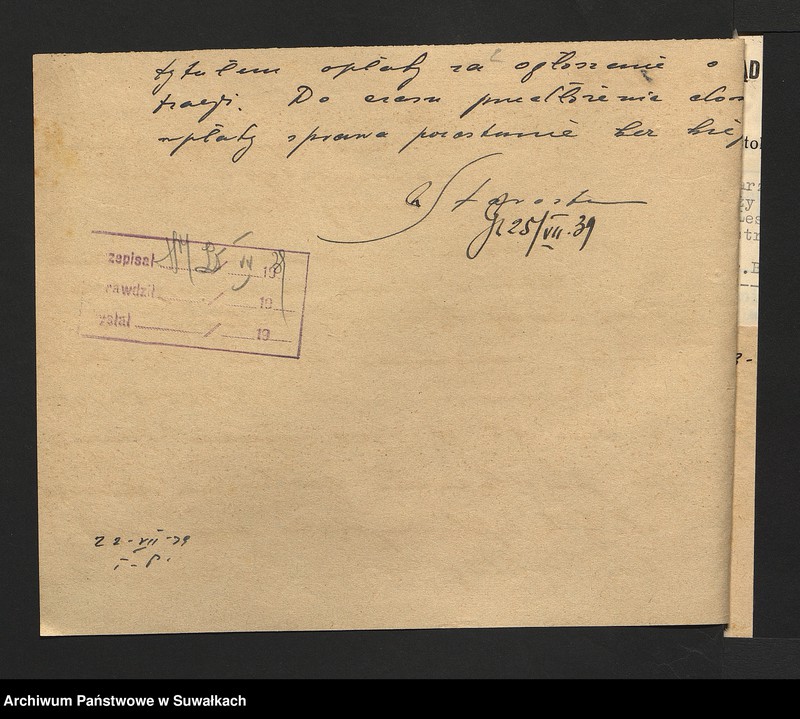 tytułem opłaty za ogłoszenie o
tracji. Do czasu przedłożenia dow
wpłaty sprawa pozostanie bez bieg
Starosta
25/VII.39
zepisał 25 VII 1939
rawdził / 19
ysłał / 19
22-VII-39
ĄD
tol
arz
zy
Les
tr
.B
3-
Archiwum Państwowe w Suwałkach